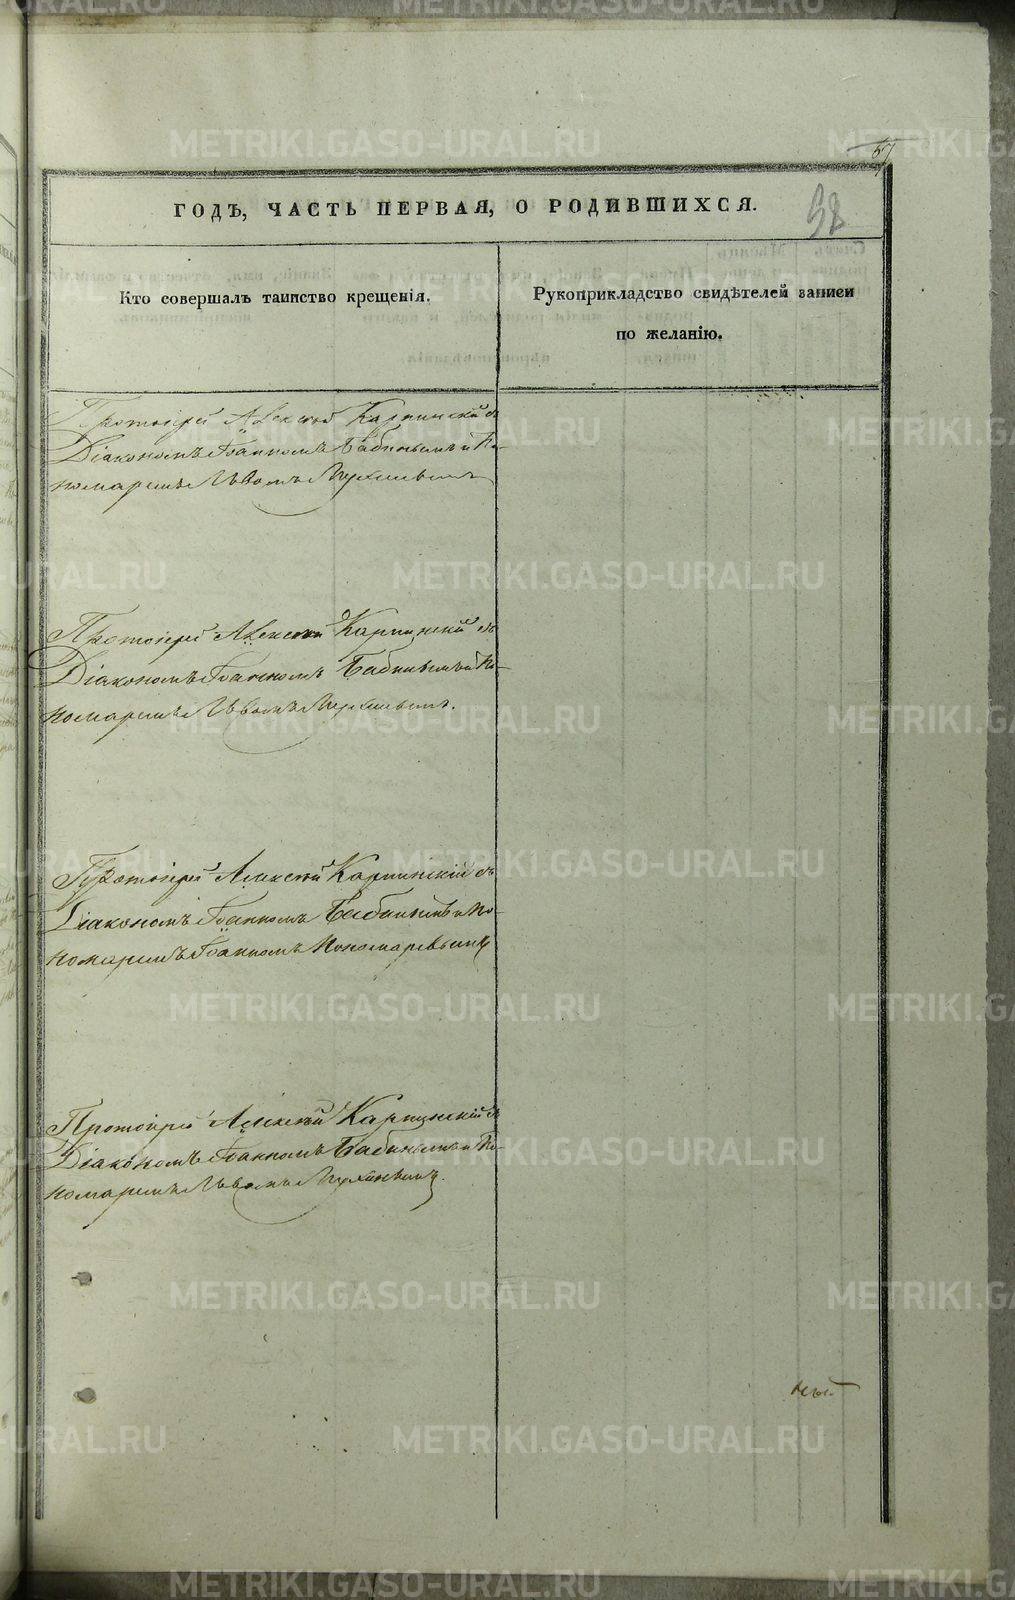 57
58
ГОДЪ, ЧАСТЬ ПЕРВАЯ, О РОДИВШИХСЯ.
Кто совершалъ таинство крещенія.
Рукоприкладство свидѣтелей записи
по желанію.
Протоіерей Алексѣй Карпинскій съ
Діакономъ Іоанномъ Бабинымъ и По-
номаремъ Львомъ
Протоіерей Алексѣй Карпинскій съ
Діакономъ Іоанномъ Бабинымъ и По-
номаремъ Львомъ
Протоіерей Алексѣй Карпинскій съ
Діакономъ Іоанномъ Бабинымъ и По-
номаремъ Іоанномъ Пономаревымъ
Протоіерей Алексѣй Карпинскій съ
Діакономъ Іоанномъ Бабинымъ и По-
номаремъ Львомъ
METRIKI.GASO-URAL.RU